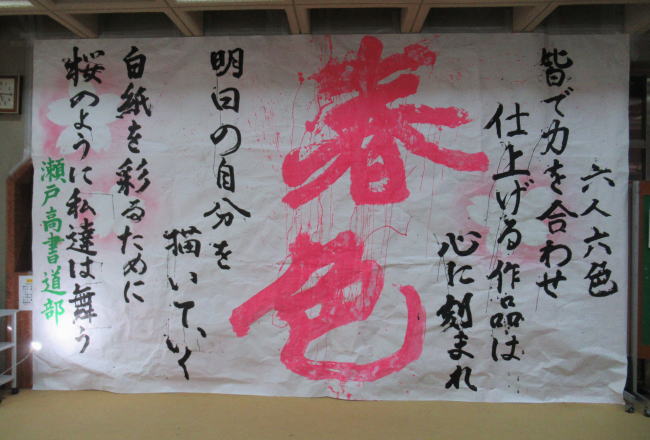 六人六色
皆で力を合わせ
仕上げる作品は
心に刻まれ
春色
明日の自分を
描いていく
白紙を彩るために
桜のように私達は舞う
瀬戸高書道部